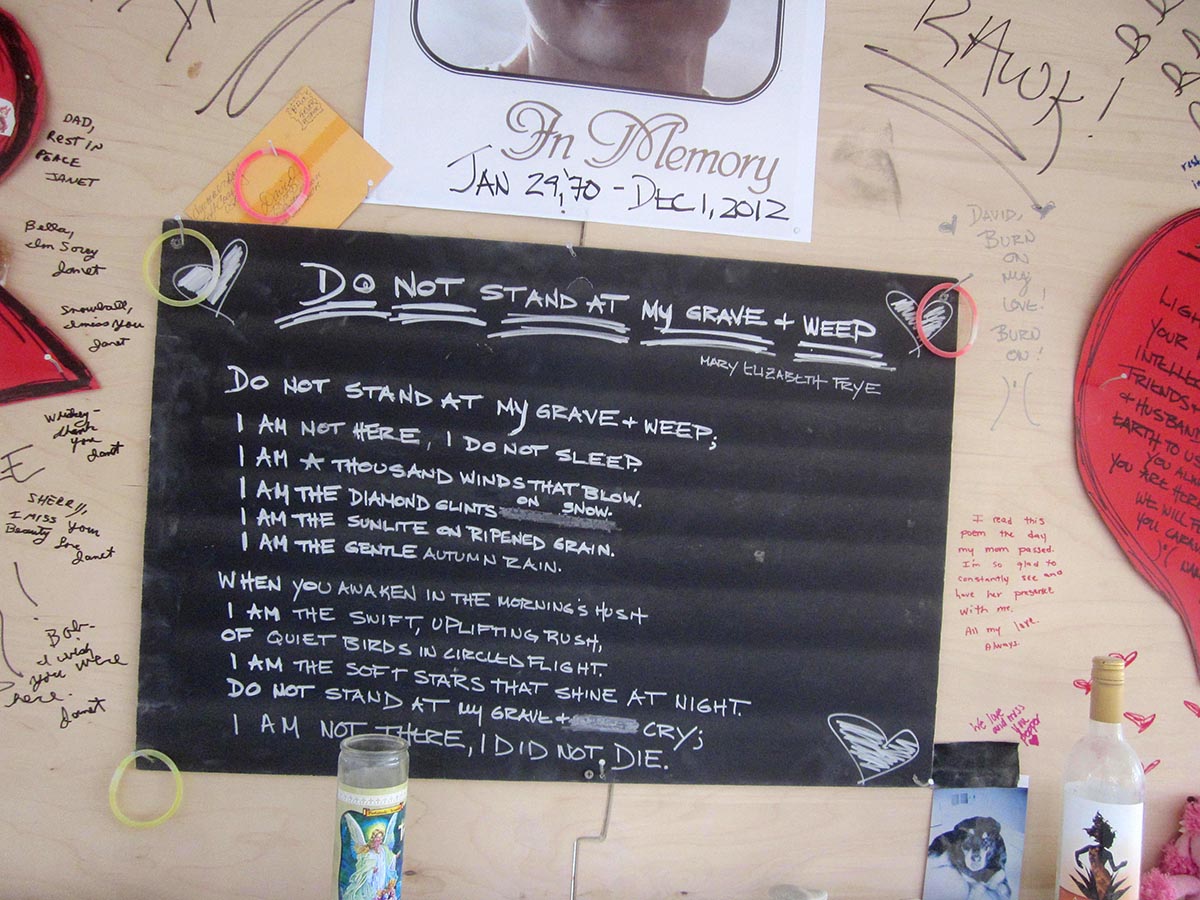 RAWK!
In Memory
JAN 29, '70 - DEC 1, 2012
DAD,
REST IN
PEACE
JANET
Bella,
I'm Sorry
Janet
Snowball,
I miss You
Janet
Whiskey-
thank
you
Janet
SHERRY,
I MISS Your
Beauty Love
Janet
Bob-
I wish
you were
here.
Janet
DO NOT STAND AT MY GRAVE + WEEP
MARY ELIZABETH FRYE
DO NOT STAND AT MY GRAVE + WEEP;
I AM NOT HERE, I DO NOT SLEEP.
I AM A THOUSAND WINDS THAT BLOW.
I AM THE DIAMOND GLINTS ON SNOW.
I AM THE SUNLITE ON RIPENED GRAIN.
I AM THE GENTLE AUTUMN RAIN.
WHEN YOU AWAKEN IN THE MORNING'S HUSH
I AM THE SWIFT, UPLIFTING RUSH,
OF QUIET BIRDS IN CIRCLED FLIGHT.
I AM THE SOFT STARS THAT SHINE AT NIGHT.
DO NOT STAND AT MY GRAVE + CRY;
I AM NOT THERE, I DID NOT DIE.
DAVID,
BURN
ON
MY
LOVE!
BURN
ON!
)'(
I read this
poem the day
my mom passed.
I'm so glad to
constantly see and
have her presence
with me.
All my love.
Always.
We love
and miss
you
pepper
YOUR
FRIENDS
& HUSBAND
EARTH TO US
YOU ARE HER
WE WILL
YOU